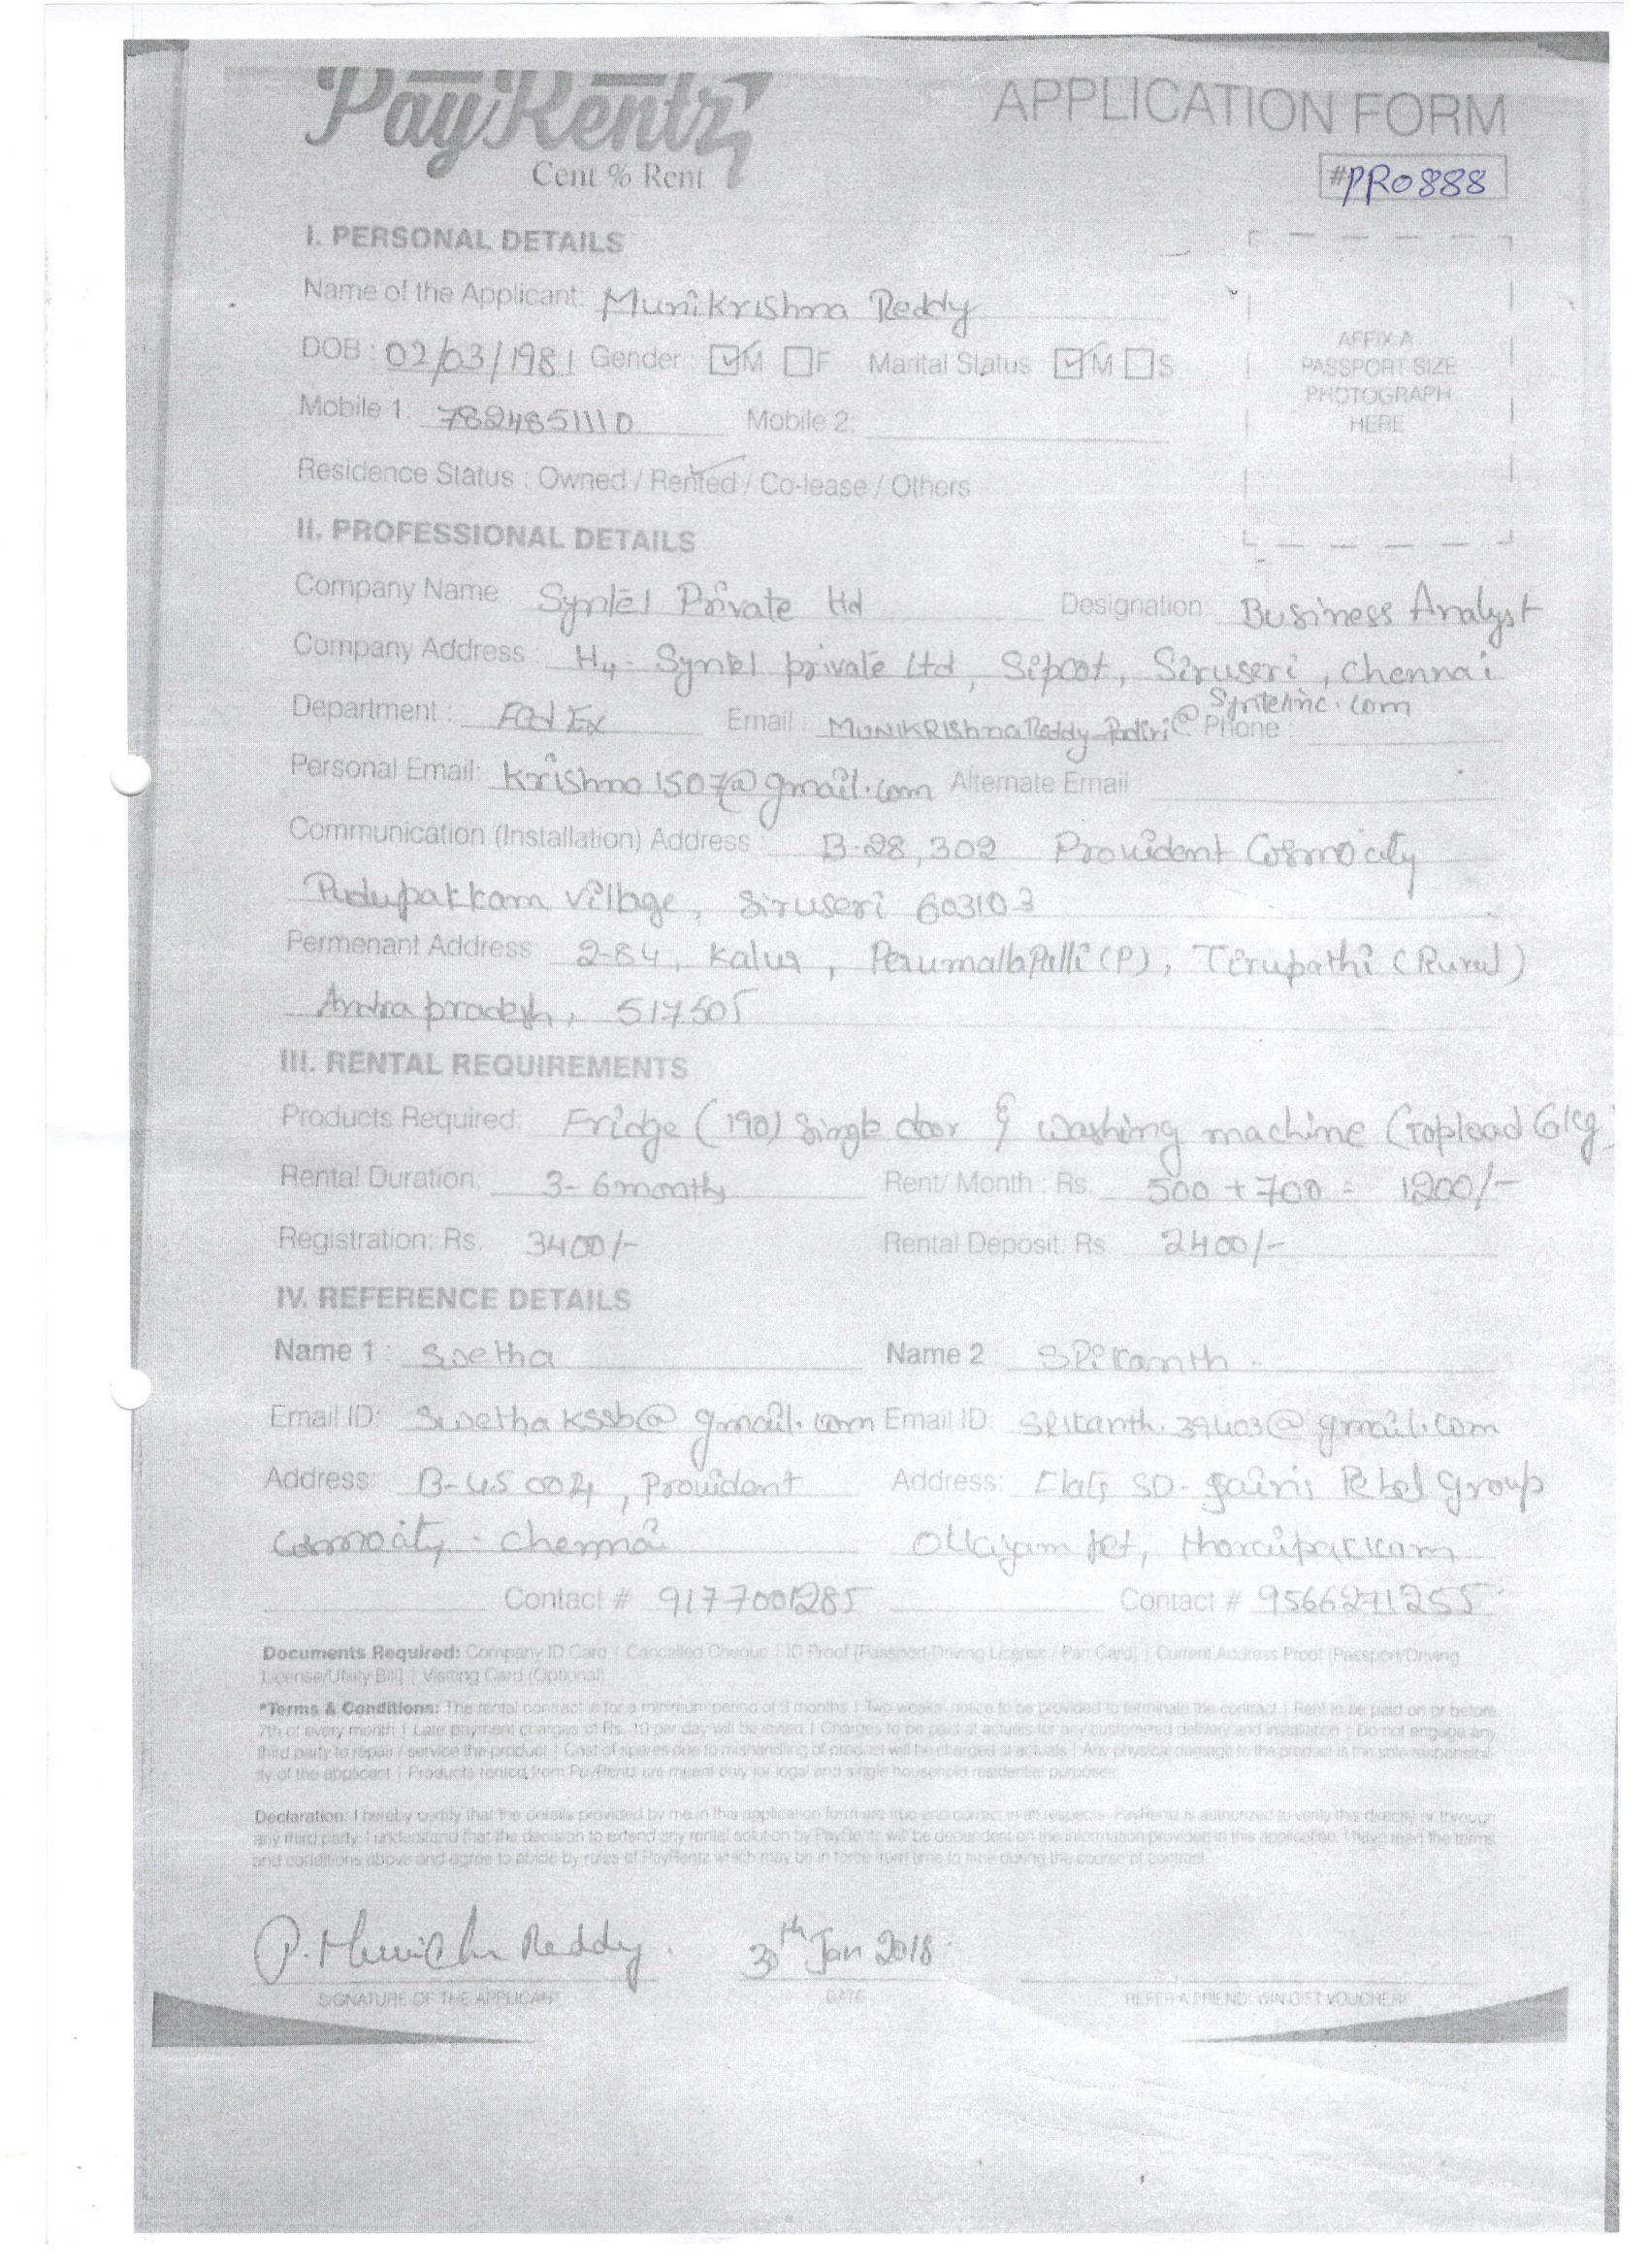 PayRentz
Cent % Rent
APPLICATION FORM
#PR0888
I. PERSONAL DETAILS
Name of the Applicant: Munikrishna Reddy
DOB : 02/03/1981 Gender : M F Marital Status M S
Mobile 1: 7824851110 Mobile 2:
AFFIX A
PASSPORT SIZE
PHOTOGRAPH
HERE
Residence Status : Owned / Rented / Co-lease / Others
II. PROFESSIONAL DETAILS
Company Name : Syntel Private ltd Designation : Business Analyst
Company Address : H4- Syntel private Ltd, Sipcot, Siruseri, Chennai
Department : FedEx Email : MuniKRIshnaReddy_Podiri@Syntelinc.com Phone :
Personal Email: Krishna1507@gmail.com Alternate Email
Communication (Installation) Address : B-28,302 Provident Cosmocity
Pudupakkam village, Siruseri 603103
Permenant Address 2-84, Kalur, Perumallapalli (P), Tirupathi (Rural)
Andra pradesh, 517505
III. RENTAL REQUIREMENTS
Products Required: Fridge (190) Single door & washing machine (Topload 6kg)
Rental Duration: 3-6 months Rent/ Month : Rs. 500 + 700 = 1200/-
Registration: Rs. 3400/- Rental Deposit: Rs 2400/-
IV. REFERENCE DETAILS
Name 1 : Swetha Name 2 Srikanth
Email ID: Swethakssb@gmail.com Email ID: Srikanth.39403@gmail.com
Address: B-45 004, Provident Address: Flat, SD- Patel Group
Cosmocity - Chennai Okkiyam pet, thoraipakkam
Contact # 9177001285 Contact # 9566271255
Documents Required: Company ID Card | Cancelled Cheque | ID Proof [Passport/Driving License / Pan Card] | Current Address Proof [Passport/Driving
License/Utility Bill] | Visiting Card (Optional)
*Terms & Conditions: The rental contract is for a minimum period of 3 months | Two weeks notice to be provided to terminate the contract | Rent to be paid on or before
7th of every month | Late payment charges of Rs. 10 per day will be levied | Charges to be paid at actuals for any customered delivery and installation | Do not engage any
third party to repair / service the product | Cost of spares due to mishandling of product will be charged at actuals | Any physical damage to the product is the sole responsibil-
ity of the applicant | Products rented from PayRentz are meant only for legal and single household residential purposes
Declaration: I hereby certify that the details provided by me in this application form are true and correct in all respects. PayRentz is authorized to verify this directly or through
any third party. I understand that the decision to extend any rental solution by PayRentz will be dependent on the information provided in this application. I have read the terms
and conditions above and agree to abide by rules of PayRentz which may be in force from time to time during the course of contract
P. Reddy 30th Jan 2018
SIGNATURE OF THE APPLICANT DATE REFER A FRIEND! WIN GIFT VOUCHER!